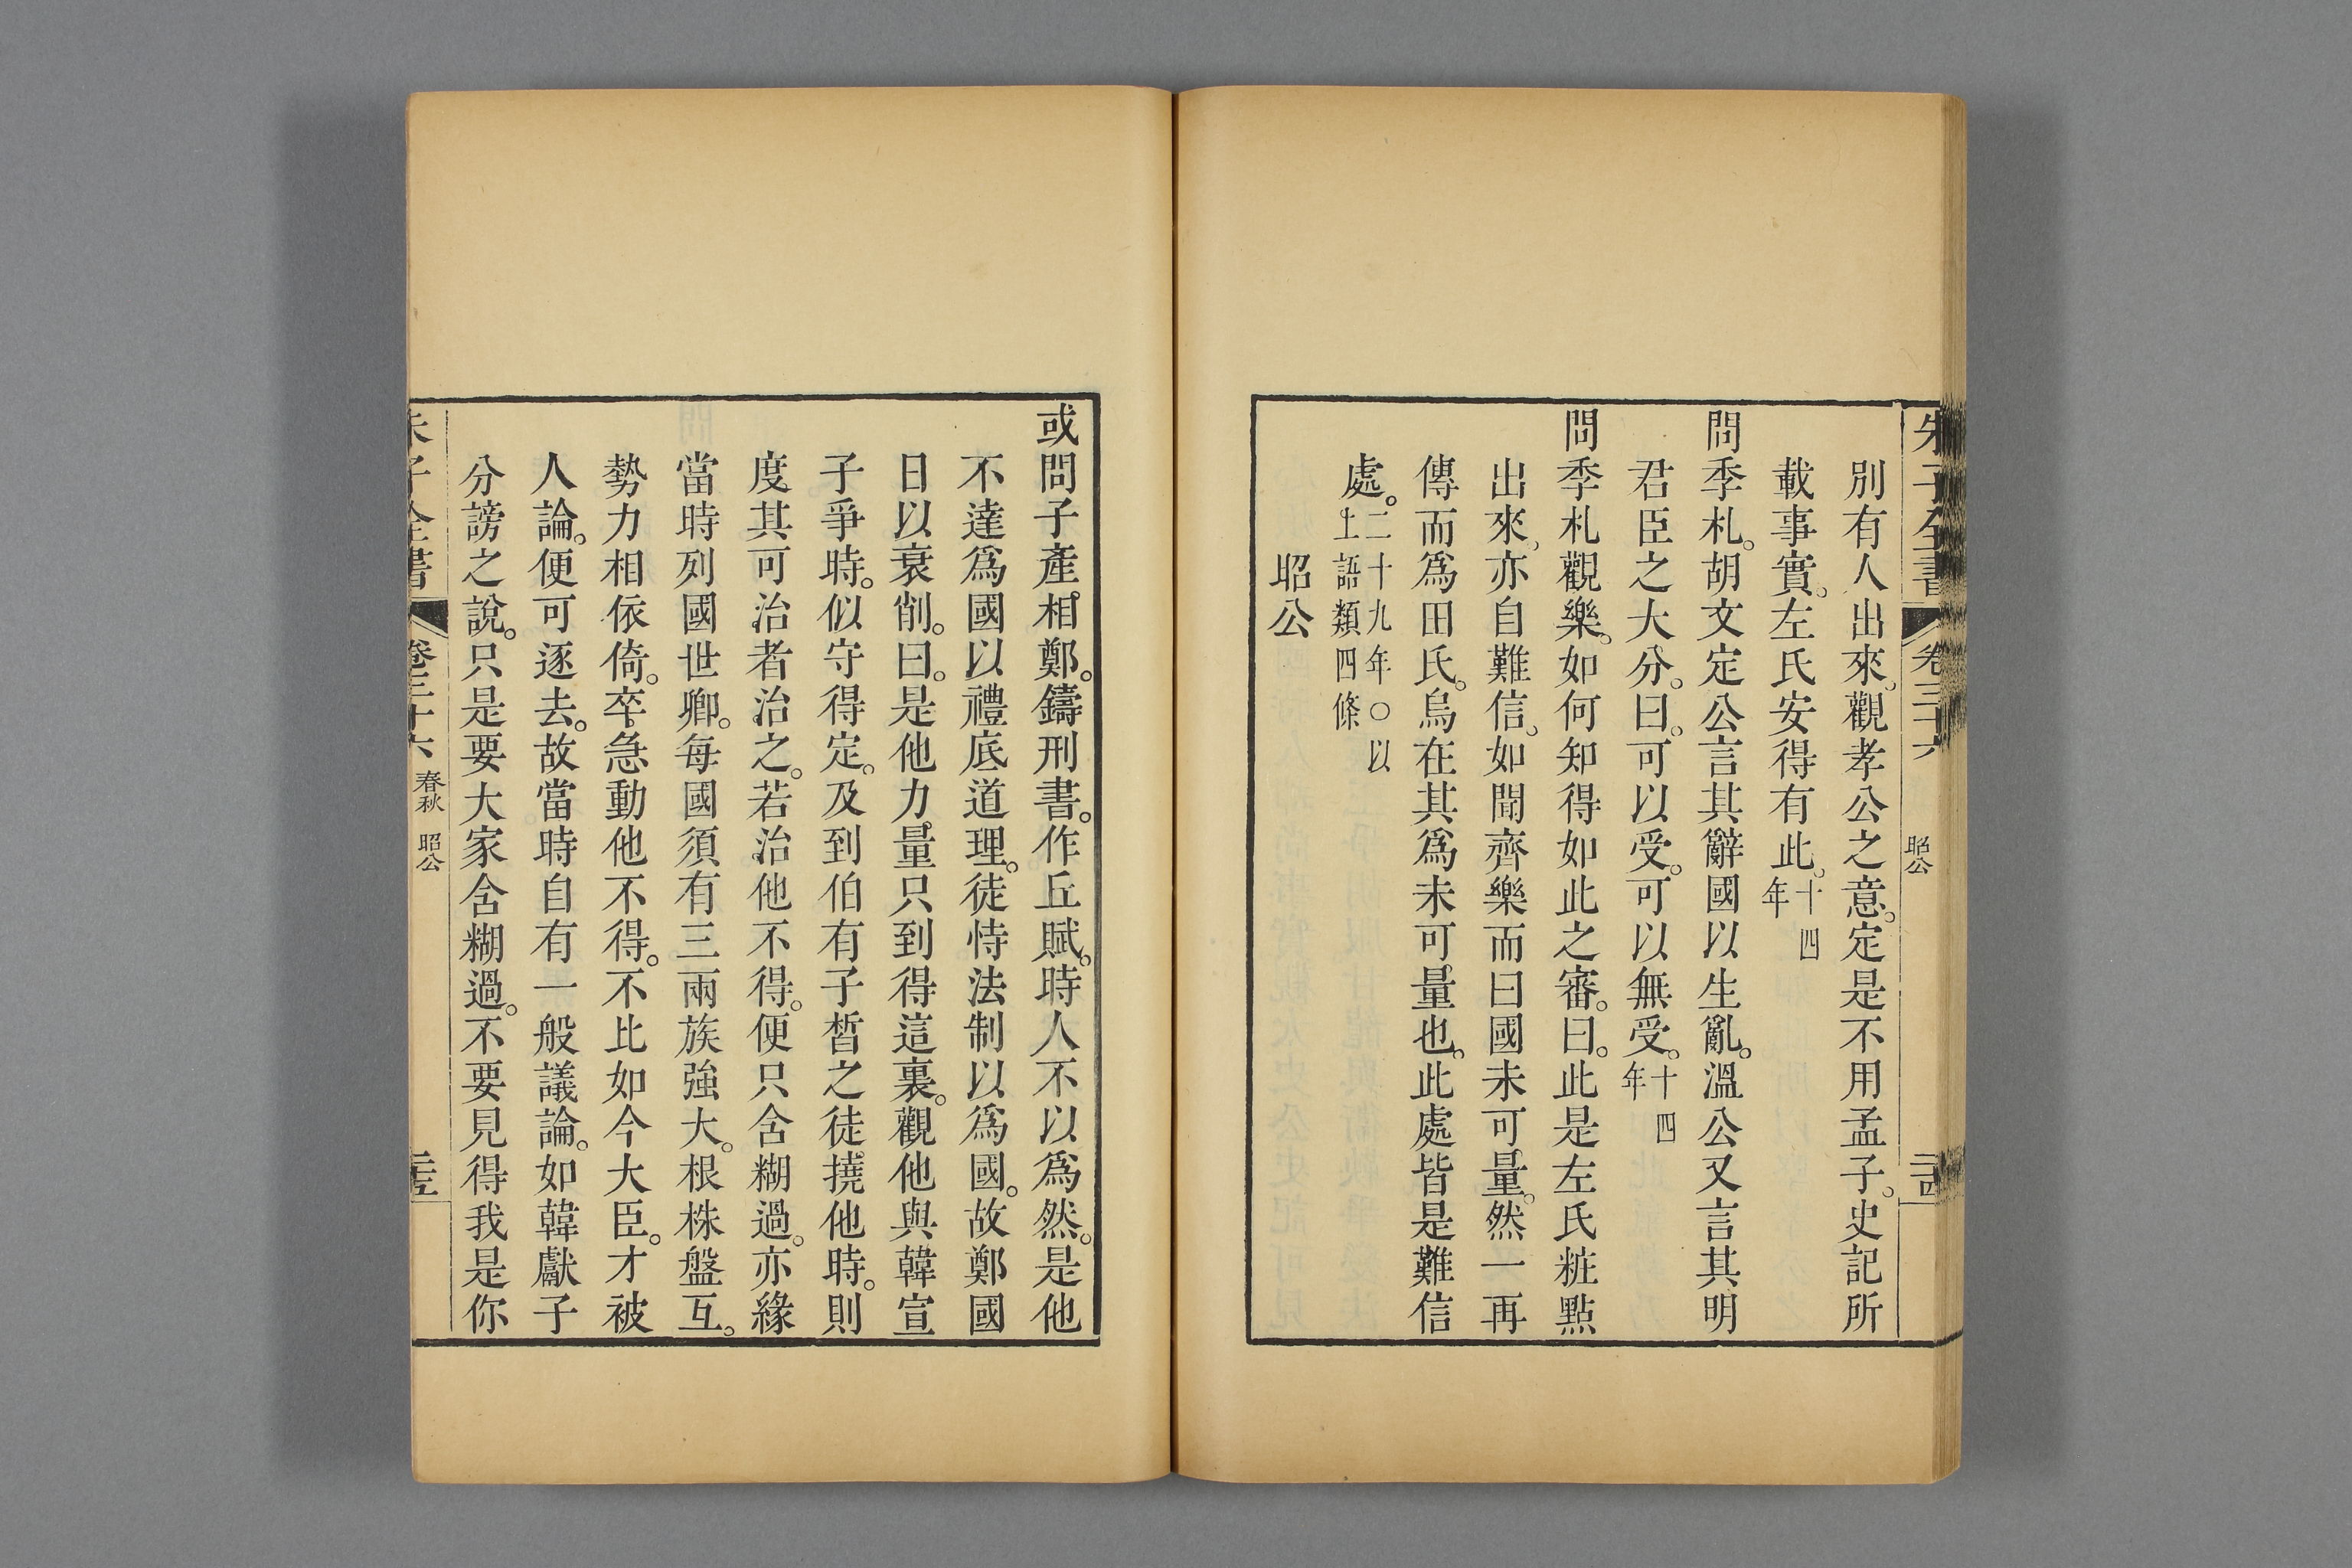 朱子全書 卷三十六 昭公 二十四
別有人出來。觀孝公之意。定是不用孟子。史記所
載事實。左氏安得有此。十四年
問季札。胡文定公言其辭國以生亂。溫公又言其明
君臣之大分。曰。可以受。可以無受。十四年
問季札觀樂。如何知得如此之審。曰。此是左氏粧點
出來。亦自難信。如聞齊樂而曰國未可量。然一再
傳而爲田氏。烏在其爲未可量也。此處皆是難信
處。二十九年○以上語類四條
昭公
或問子產相鄭。鑄刑書。作丘賦。時人不以爲然。是他
不達爲國以禮底道理。徒恃法制以爲國。故鄭國
日以衰削。曰。是他力量只到得這裏。觀他與韓宣
子爭時。似守得定。及到伯有子皙之徒撓他時。則
度其可治者治之。若治他不得。便只含糊過。亦緣
當時列國世卿。每國須有三兩族強大。根株盤互。
勢力相依倚。卒急動他不得。不比如今大臣。才被
人論。便可逐去。故當時自有一般議論。如韓獻子
分謗之說。只是要大家含糊過。不要見得我是你
朱子全書 卷三十六 春秋 昭公 二十五